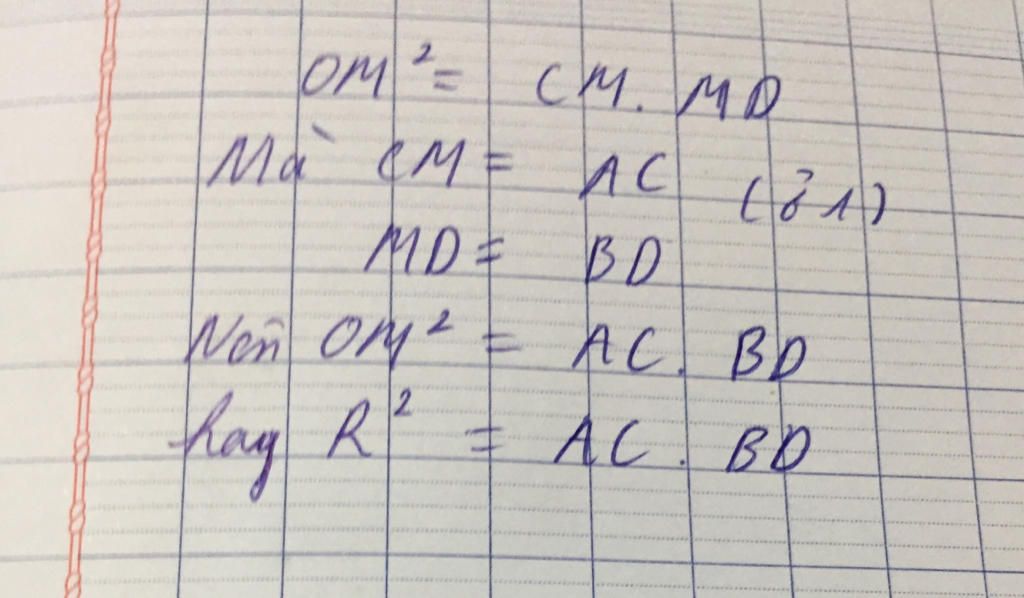 OM² = CM. MD
Mà CM = AC (ở 1)
MD = BD
Nên OM² = AC. BD
hay R² = AC. BD